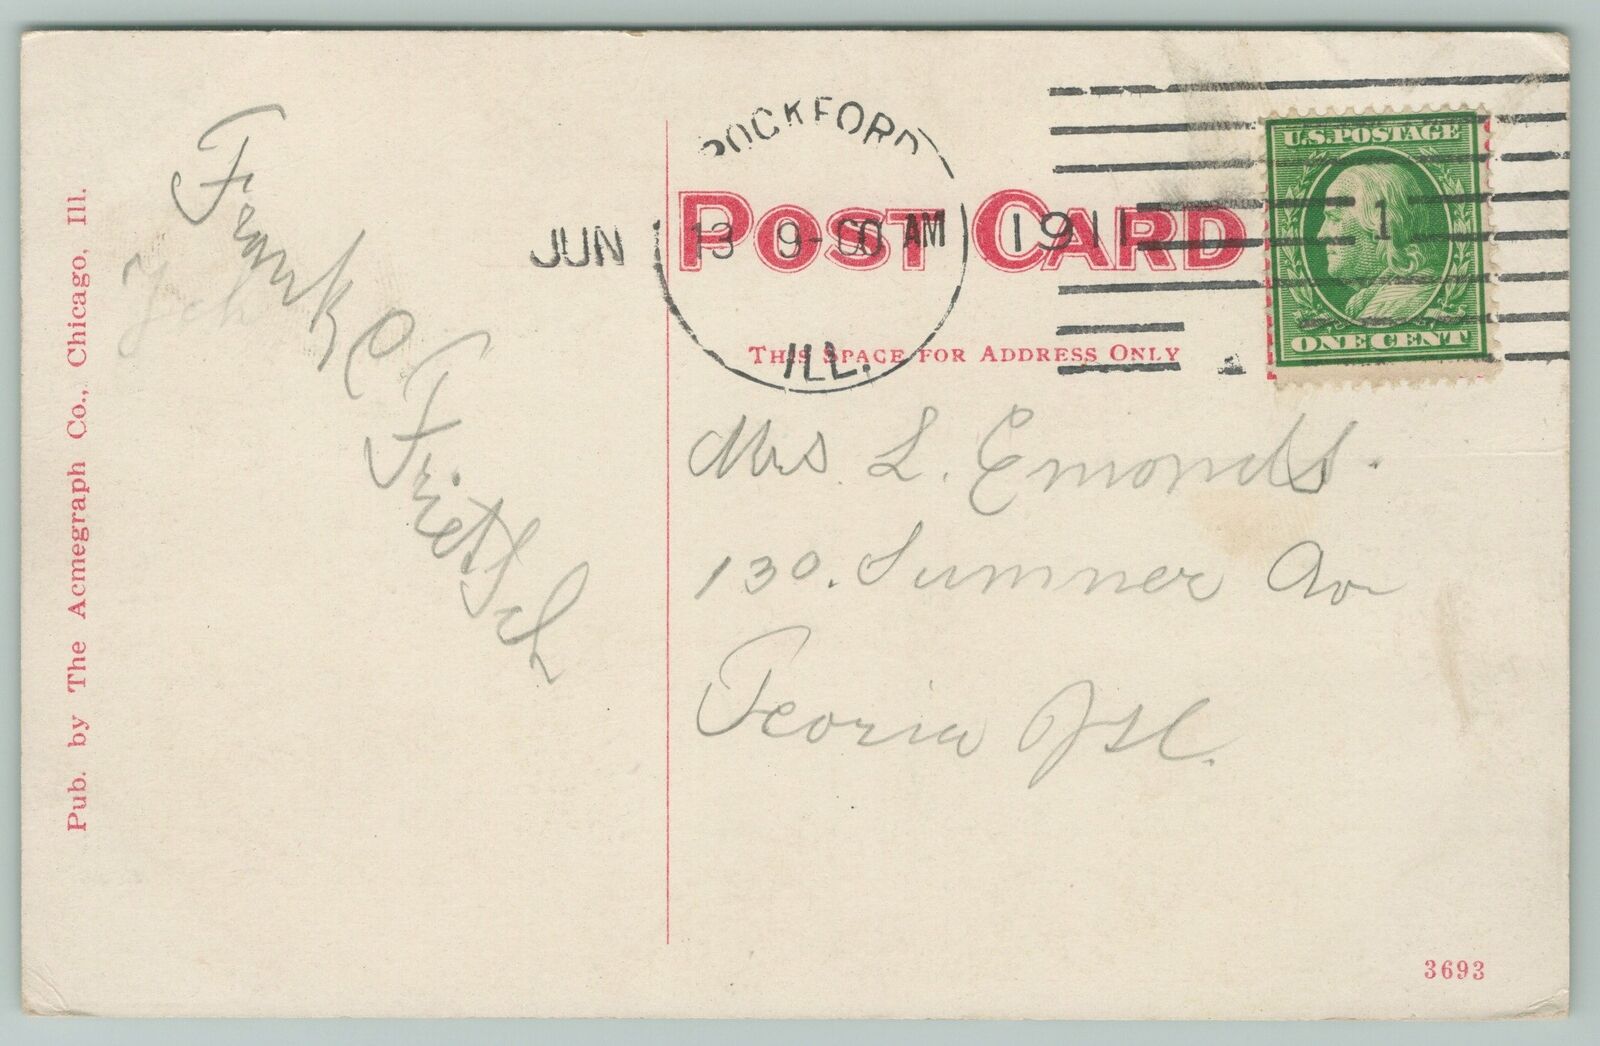 Pub. by The Acmegraph Co., Chicago, Ill.
Frank C Frietsch
ROCKFORD
JUN 13 9-00 AM 1911
ILL.
POST CARD
THIS SPACE FOR ADDRESS ONLY
U.S. POSTAGE
1
ONE CENT
Mrs L. Emonds.
130. Sumner Av
Peoria Ill.
3693